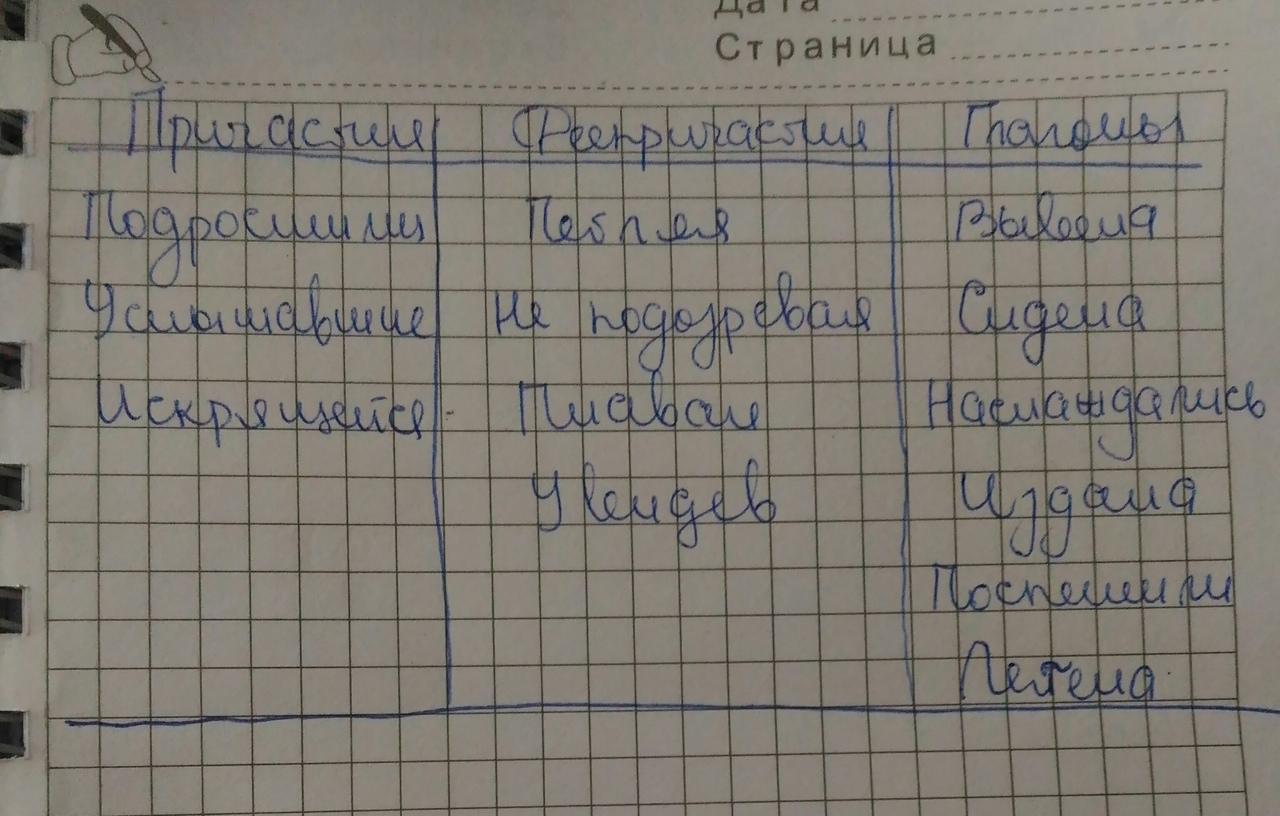 Дата
Страница
Причастия Деепричастия Глаголы
Подросшими Пеоплея Вывела
Услышавшие Не подозревая Сидела
Искрящейся Плавая Наслаждались
Увеидев Издала
Поспешили
Летела